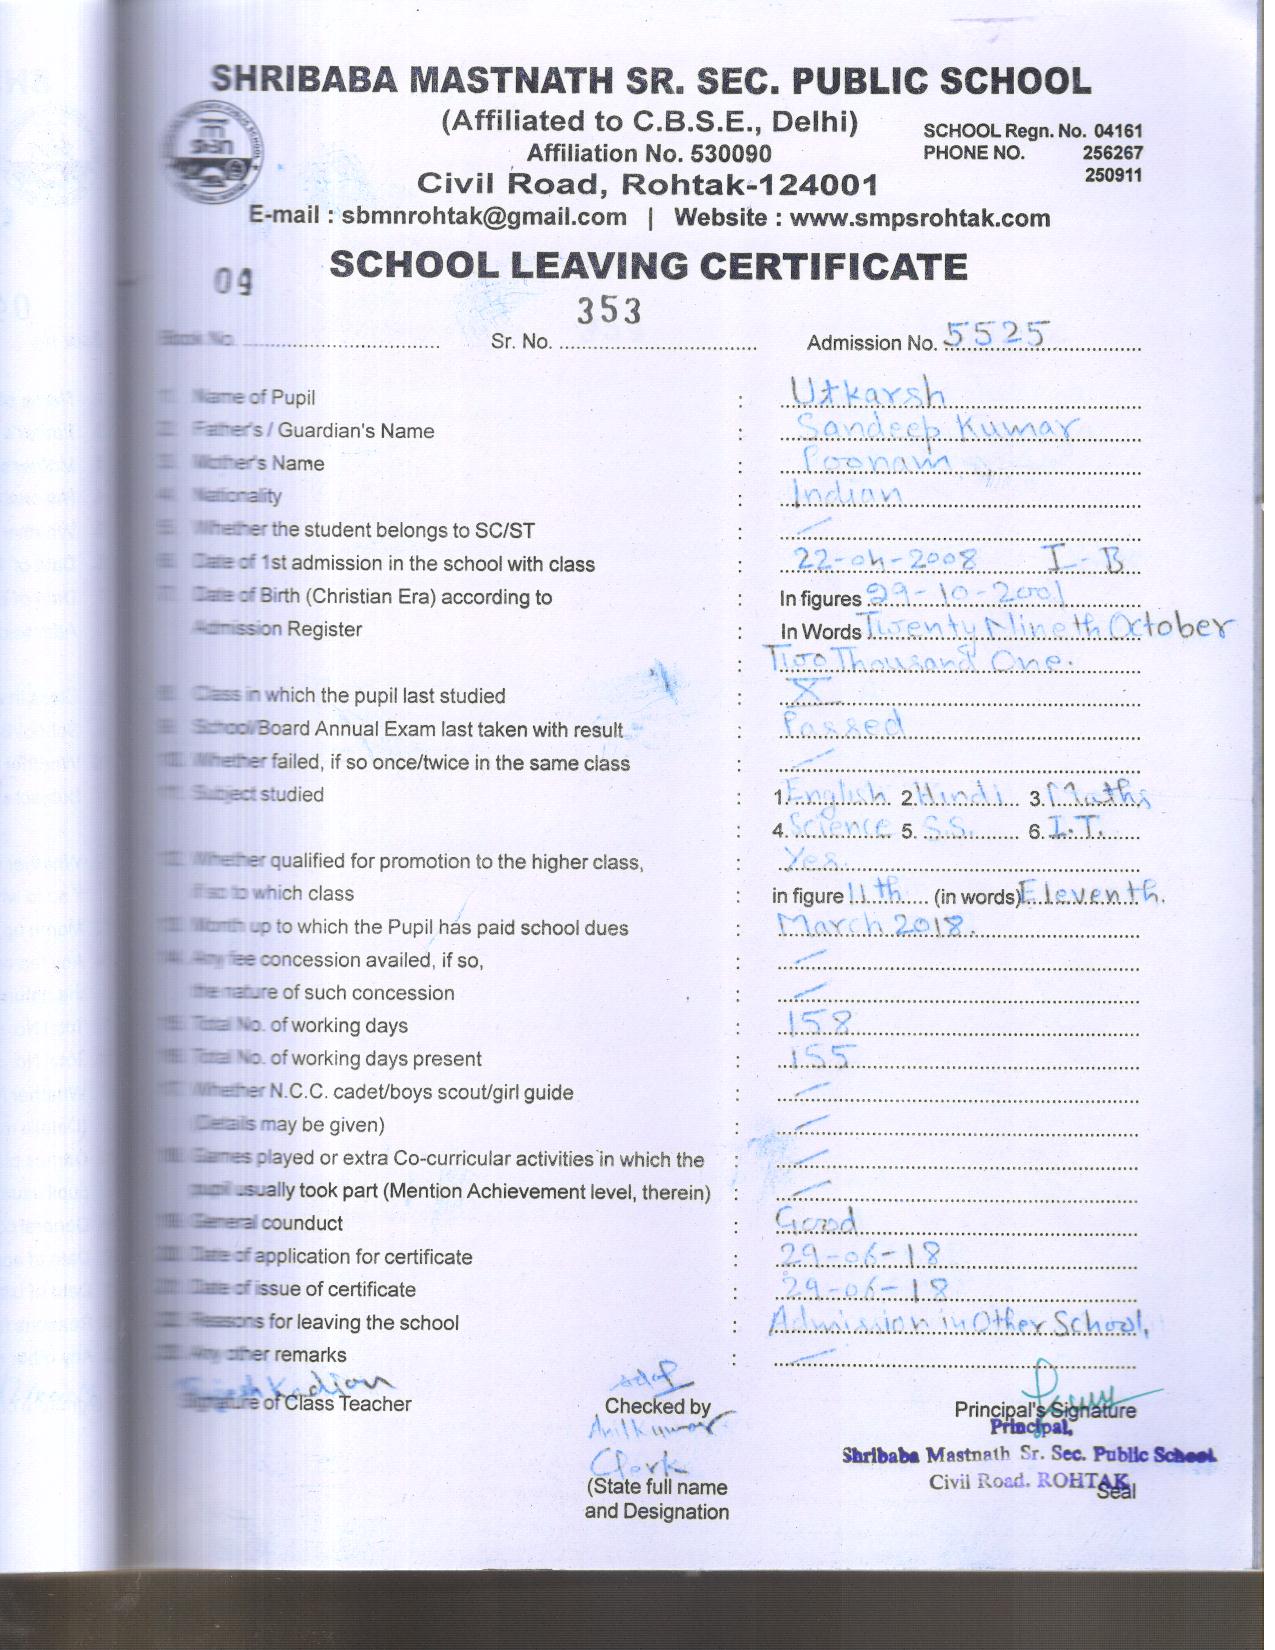 SHRIBABA MASTNATH SR. SEC. PUBLIC SCHOOL
(Affiliated to C.B.S.E., Delhi)
SCHOOL Regn. No. 04161
Affiliation No. 530090
PHONE NO. 256267
250911
Civil Road, Rohtak-124001
E-mail : sbmnrohtak@gmail.com | Website : www.smpsrohtak.com
SCHOOL LEAVING CERTIFICATE
09
353
Book No. Sr. No. Admission No. 5525
1. Name of Pupil : Utkarsh
2. Father's / Guardian's Name : Sandeep Kumar
3. Mother's Name : Poonam
4. Nationality : Indian
5. Whether the student belongs to SC/ST : —
6. Date of 1st admission in the school with class : 22-04-2008 I-B
7. Date of Birth (Christian Era) according to : In figures 29-10-2001
Admission Register : In Words Twenty Nineth October
: Two Thousand One.
8. Class in which the pupil last studied : X
9. School/Board Annual Exam last taken with result : Passed
10. Whether failed, if so once/twice in the same class : —
11. Subject studied : 1. English 2. Hindi 3. Maths
: 4. Science 5. S.S. 6. I.T.
12. Whether qualified for promotion to the higher class, : Yes.
if so to which class : in figure 11th (in words) Eleventh.
13. Month up to which the Pupil has paid school dues : March 2018.
14. Any fee concession availed, if so, : —
the nature of such concession : —
15. Total No. of working days : 158
16. Total No. of working days present : 155
17. Whether N.C.C. cadet/boys scout/girl guide : —
(Details may be given) : —
18. Games played or extra Co-curricular activities in which the : —
pupil usually took part (Mention Achievement level, therein) : —
19. General counduct : Good
20. Date of application for certificate : 29-06-18
21. Date of issue of certificate : 29-06-18
22. Reasons for leaving the school : Admission in Other School.
23. Any other remarks : —
Kadian
Signature of Class Teacher
Checked by
Anil Kumar
Clerk
(State full name
and Designation
Principal's Signature
Principal,
Shribaba Mastnath Sr. Sec. Public School
Civil Road. ROHTAK
Seal